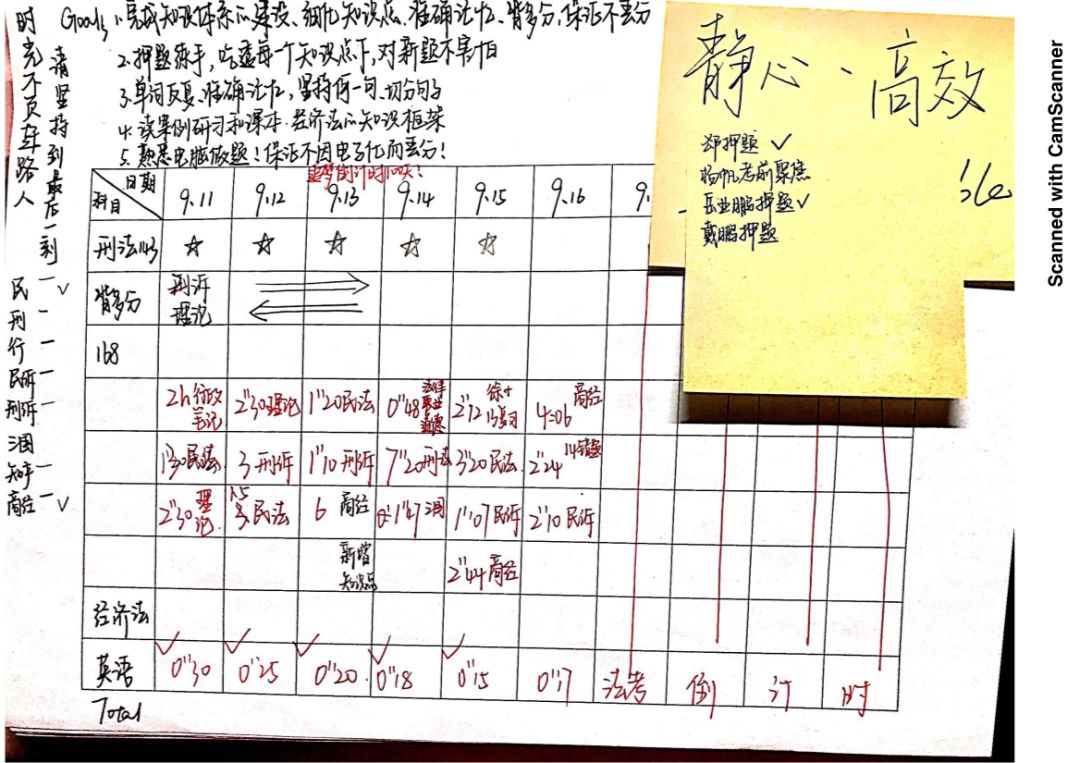 时光不负赶路人
请坚持到最后一刻
Goal: 1. 完成知识体系的建设、细化知识点、准确记忆、背多分、保证不丢分
2. 押题练手, 吃透每一个知识点, 对新题不害怕
3. 单词反复、准确记忆, 坚持每一句、切分句子
4. 读案例研习和课本. 经济法的知识框架
5. 熟悉电脑做题! 保证不因电子化而丢分!
倒计时100天!
静心、高效
押题 ✓
考前聚焦
岳业鹏押题 ✓
戴鹏押题
日期
科目
9.11 9.12 9.13 9.14 9.15 9.16 9.
刑法 ☆ ☆ ☆ ☆ ☆
背多分 刑诉
理论
168
2h行政笔记 2"30理论 1"20民法 0"48 2"12 4:06 商经
1"30民法 3 刑诉 1"10 刑诉 7"20刑法 3"20民法 2"24
2"30理论 民法 6 商经 1"47 1"07民诉 2"10 民诉
知识点 2"44商经
经济法
英语 0"30 0"25 0"20 0"18 0"15 0"17 法考 倒 计 时
Total
民 一 ✓
刑 一
行 一
民诉 一
刑诉 一
一
知产 一
商经 一 ✓
Scanned with CamScanner